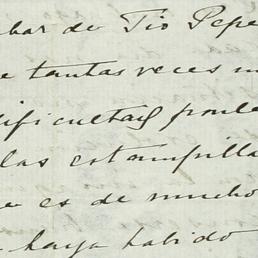 bar de Tio Pepe
e tantas veces m
dificultad
las estampilla
es de mucho
haya habido